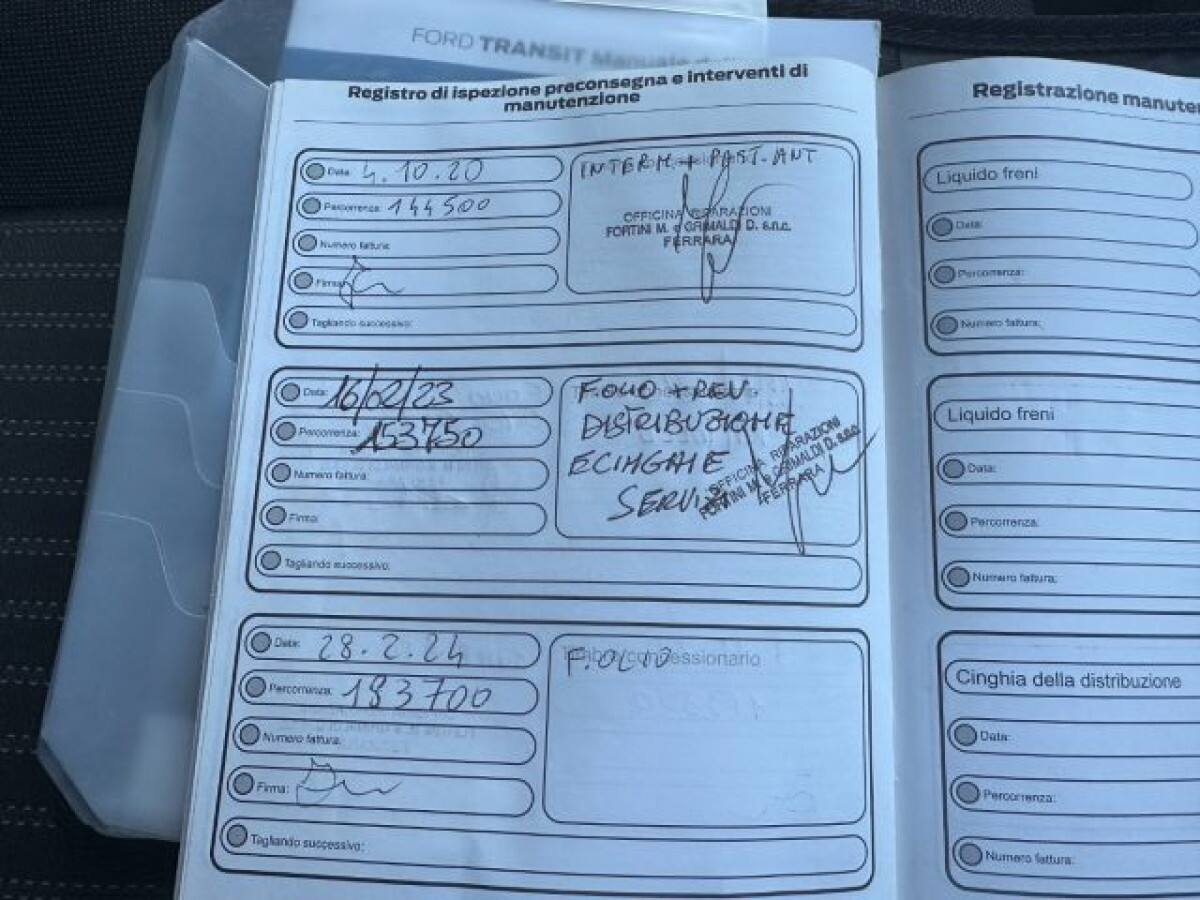 FORD TRANSIT Manuale
Registro di ispezione preconsegna e interventi di
manutenzione
Data: 4.10.20
Percorrenza: 144500
Numero fattura:
Firma:
Tagliando successivo:
INTERM. + PAST. ANT
OFFICINA RIPARAZIONI
FORTINI M. e GRIMALDI D. s.n.c.
FERRARA
Data: 16/02/23
Percorrenza: 153750
Numero fattura:
Firma:
Tagliando successivo:
F.OLIO + REV.
DISTRIBUZIONE
E CINGHIE
SERVIZI
OFFICINA RIPARAZIONI
FORTINI M. e GRIMALDI D. s.n.c.
FERRARA
Data: 28.2.24
Percorrenza: 193700
Numero fattura:
Firma:
Tagliando successivo:
Timbro concessionario
F.OLIO
Registrazione manuten
Liquido freni
Data:
Percorrenza:
Numero fattura:
Liquido freni
Data:
Percorrenza:
Numero fattura:
Cinghia della distribuzione
Data:
Percorrenza:
Numero fattura: